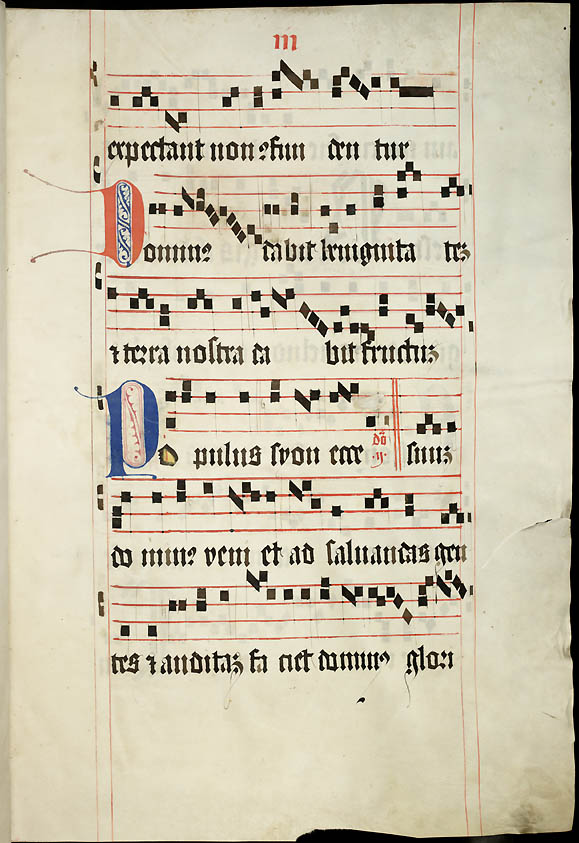 m
expectant non ꝯfun den tur
Dominꝰ dabit benignita teꝫ
⁊ terra nostra da bit fructuꝫ
Po pulus syon ecce suuꝫ
dō
ij.
do minꝰ veni et ad saluandas gen
tes ⁊ auditaꝫ fa ciet dominꝰ glori